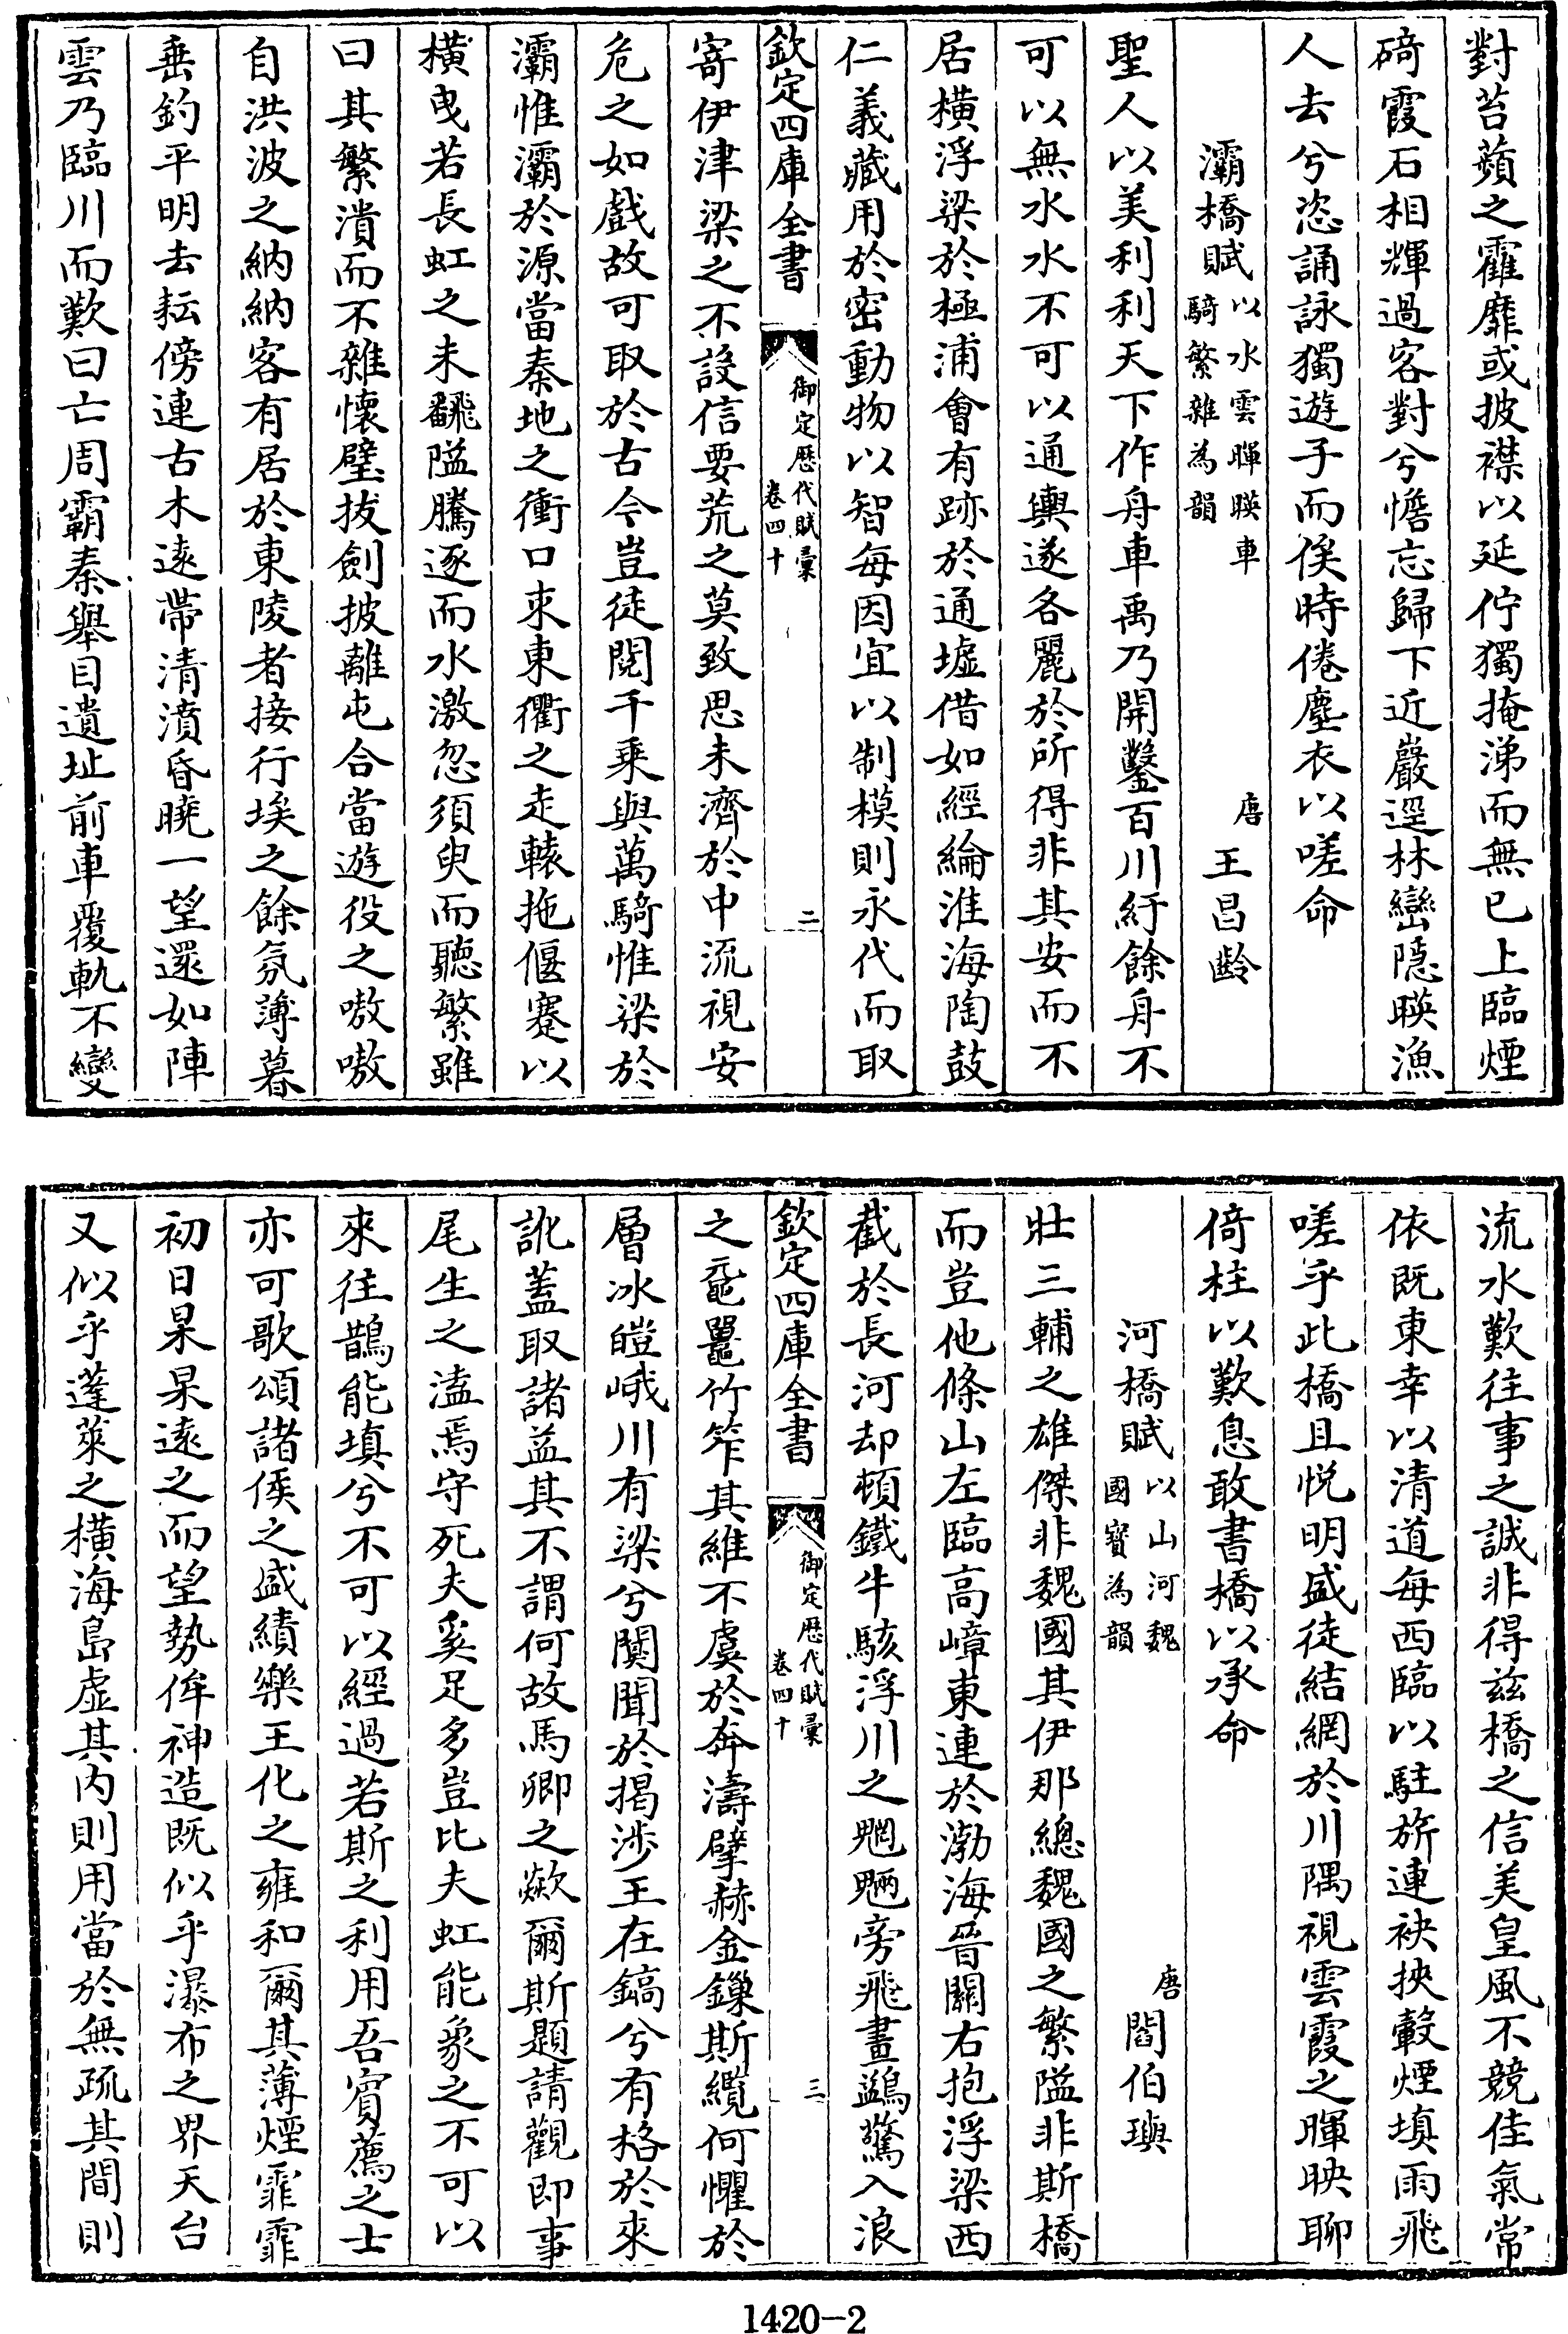 對苔蘋之靃靡或披襟以延佇獨掩涕而無已上臨煙
碕霞石相輝過客對兮憺忘歸下近巖逕林巒隱暎漁
人去兮恣誦詠獨遊子而俟時倦塵衣以嗟命
灞橋賦以水雲暉暎車騎繁雜為韻 唐 王昌齡
聖人以美利利天下作舟車禹乃開鑿百川紆餘舟不
可以無水水不可以通輿遂各麗於所得非其安而不
居橫浮梁於極浦會有跡於通墟借如經綸淮海陶鼓
仁義藏用於密動物以智每因宜以制模則永代而取
欽定四庫全書 御定歷代賦彙 卷四十 二
寄伊津梁之不設信要荒之莫致思未濟於中流視安
危之如戲故可取於古今豈徒閱千乘與萬騎惟梁於
灞惟灞於源當秦地之衝口束東衢之走轅拖偃蹇以
橫曳若長虹之未翻隘騰逐而水激忽須臾而聽繁雖
曰其繁潰而不雜懷璧拔劍披離屯合當遊役之嗷嗷
自洪波之納納客有居於東陵者接行埃之餘氛薄暮
垂釣平明去耘傍連古木遠帶清濆昏曉一望還如陣
雲乃臨川而歎曰亡周霸秦舉目遺址前車覆軌不變
流水歎往事之誠非得茲橋之信美皇風不競佳氣常
依既東幸以清道每西臨以駐旂連袂挾轂煙填雨飛
嗟乎此橋且悅明盛徒結網於川隅視雲霞之暉映聊
倚柱以歎息敢書橋以承命
河橋賦以山河魏國寶為韻 唐 閻伯璵
壯三輔之雄傑非魏國其伊那總魏國之繁隘非斯橋
而豈他條山左臨高嶂東連於渤海晉關右抱浮梁西
截於長河却頓鐵牛駭浮川之魍魎旁飛畫鷁驚入浪
欽定四庫全書 御定歷代賦彙 卷四十 三
之黿鼉竹筰其維不虞於奔濤擘赫金鏁斯纜何懼於
層冰皚峨川有梁兮闃聞於揭涉王在鎬兮有格於來
訛蓋取諸益其不謂何故馬卿之歘爾斯題請觀即事
尾生之溘焉守死夫奚足多豈比夫虹能象之不可以
來往鵲能填兮不可以經過若斯之利用吾賓薦之士
亦可歌頌諸侯之盛績樂王化之雍和爾其薄煙霏霏
初日杲杲遠之而望勢侔神造既似乎瀑布之界天台
又似乎蓬萊之橫海島虛其內則用當於無疏其間則
1420-2